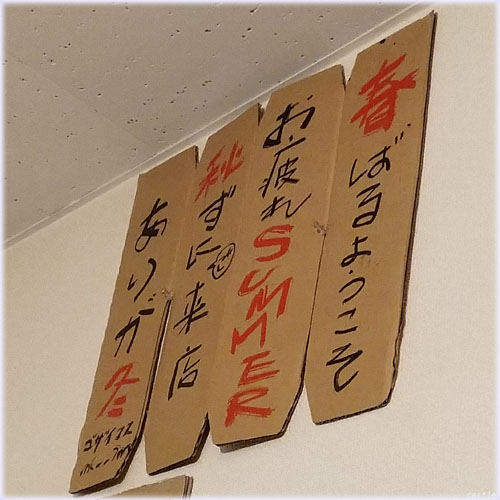 春ばるようこそ
お疲れSUMMER
秋ずに来店
ありが冬
ゴザイマス